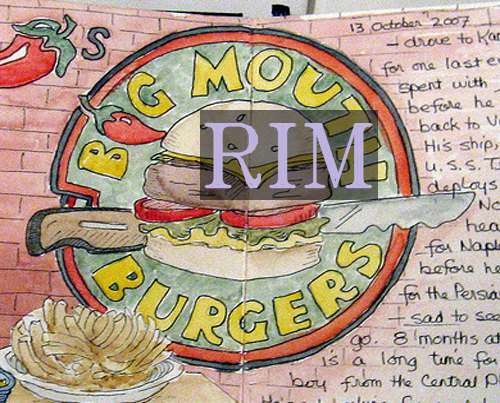 'S
BIG MOUTH
BURGERS
RIM
13 October 2007
I drove to Kan
for one last ev
spent with
before he
back to Vi
His ship,
U.S.S. T
deploys
No
hea
for Naple
before he
for the Persia
I sad to see
go. 8 months at
is a long time for
boy from the Central Pl